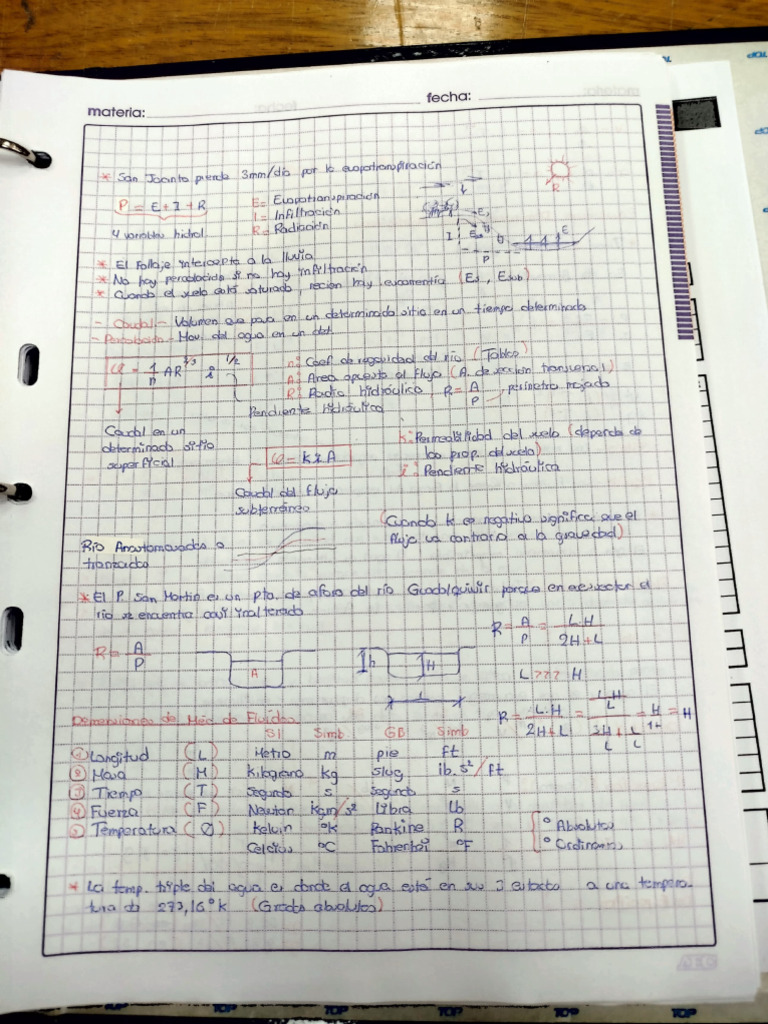 materia:
fecha:
* San Jacinto pierde 3mm/día por la evapotranspiración
P = E + I + R
4 variables hidrol.
E = Evapotranspiración
I = Infiltración
R = Radiación
R
I
E
P
* El follaje intercepta a la lluvia
* No hay percolación si no hay infiltración
* Cuando el suelo está saturado, recien hay escorrentía
- Caudal.- Volumen que pasa en un determinado sitio en un tiempo determinado
Mov. del agua en un
Q = 1/n AR^2/3 i^1/2
n: Coef de rugosidad del río (Tablas)
A: Area opuesta al flujo (A. de sección transversal)
R: Radio Hidráulico, R = A/P, perímetro mojado
Pendiente Hidráulica
Caudal en un
determinado sitio
superficial
Q = k i A
k: Permeabilidad del suelo (depende de
las prop. del suelo)
i: Pendiente Hidráulica
Caudal del flujo
subterráneo
(Cuando k es negativo significa que el
flujo va contrario a la gravedad)
Río
trenzados
* El P. San Martín es un pto. de aforo del río Guadalquivir porque en ese sector el
río se encuentra casi inalterado
R = A/P
A
h
H
L
R = A/P = L.H/2H+L
L >>> H
R = L.H/2H+L = L.H/L / 2H/L + L/L = H/1+ = H
Dimensiones de Mec de Fluidos
SI Simb GB Simb
① Longitud (L) Metro m pie ft
② Masa (M) Kilogramo kg slug lb.s²/ft
③ Tiempo (T) Segundo s segundo s
④ Fuerza (F) Newton kgm/s² Libra Lb
⑤ Temperatura (Ø) Kelvin °k Rankine R
Celcius °C °F
° Absolutos
° Ordinarios
* La temp. triple del agua es donde el agua está en sus 3 estados a una tempera-
tura de 273,16°k (Grados absolutos)
AEG
TOP
TOP
TOP
TOP
TOP